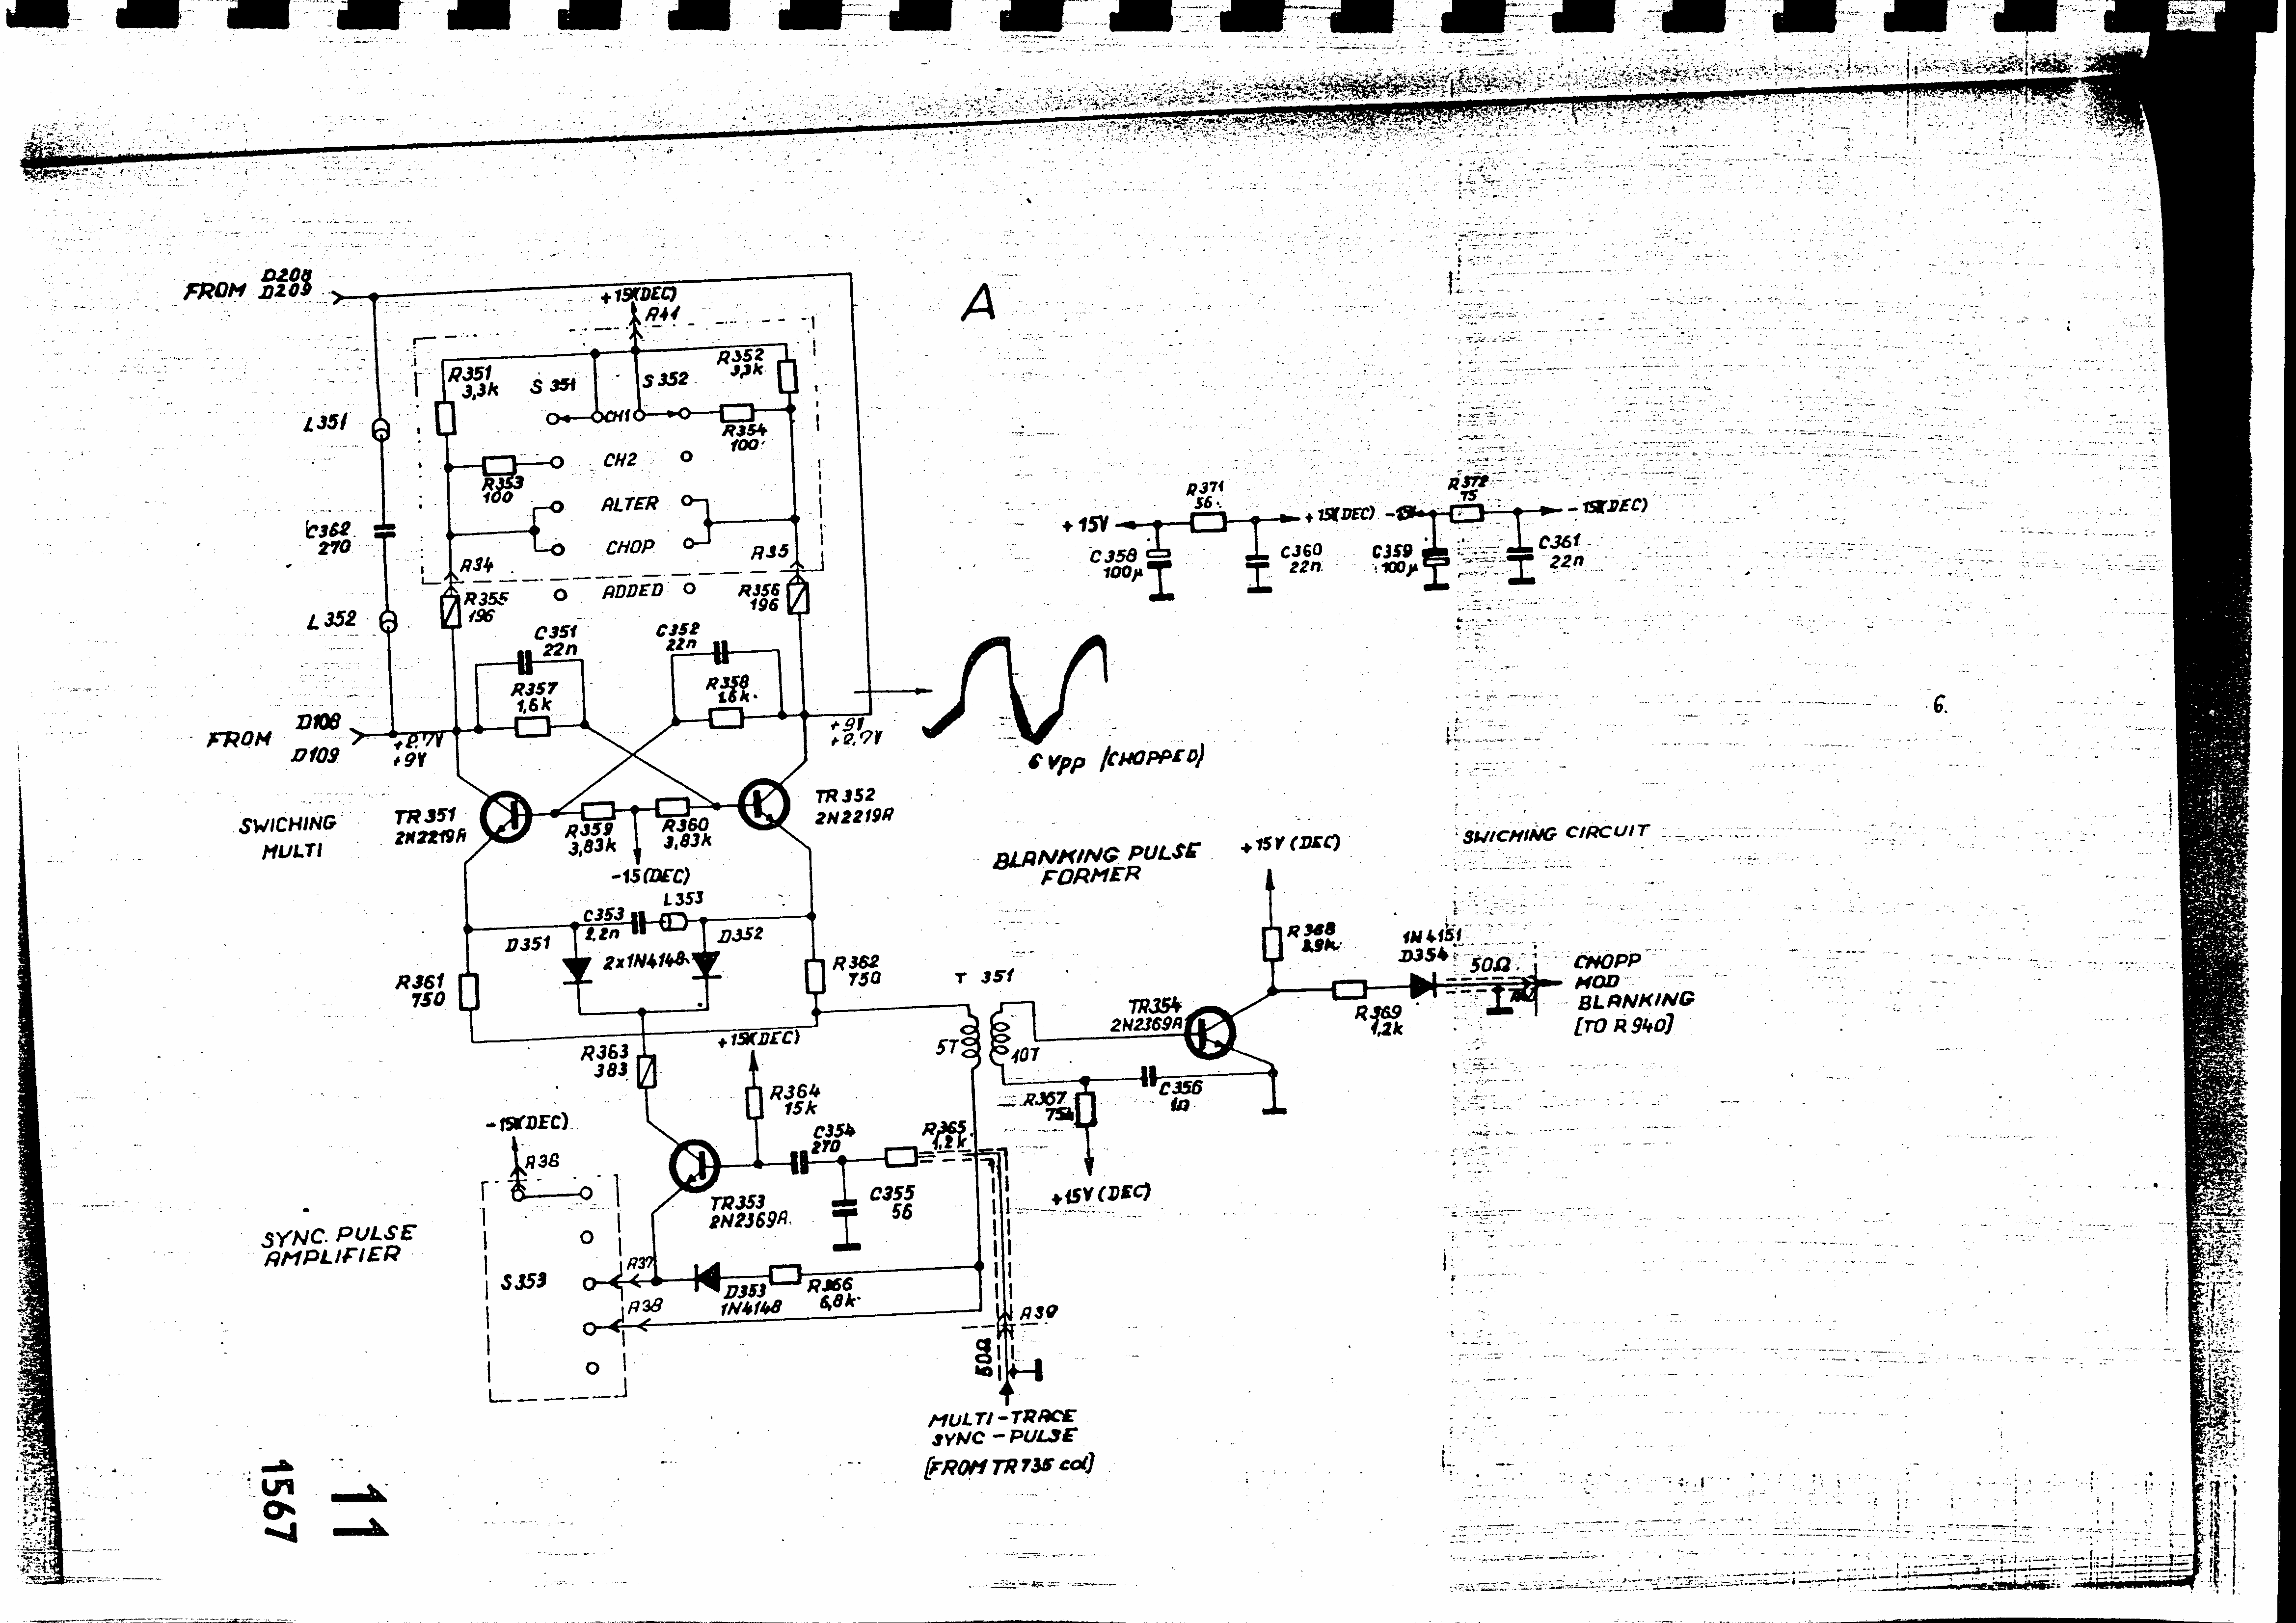 FROM D208
D209
+15V(DEC)
A41
A
R351
3,3k
S 351
S 352
R352
3,3k
CH1
R354
100
L351
CH2
R353
100
ALTER
CHOP
A34
A35
C362
270
R355
196
ADDED
R356
196
L352
C351
22n
C352
22n
R357
1,6k
R358
1,6k
FROM D108
D109
+2,7V
+9V
+9V
+2,7V
6 Vpp (CHOPPED)
R371
56
R372
75
+15V
+15V(DEC)
-15V
-15V(DEC)
C358
100µ
C360
22n
C359
100µ
C361
22n
6.
SWICHING
MULTI
TR351
2N2219A
TR352
2N2219A
R359
3,83k
R360
3,83k
-15(DEC)
L353
C353
2,2n
D351
D352
2x1N4148
R361
750
R362
750
BLANKING PULSE
FORMER
+15V (DEC)
SWICHING CIRCUIT
R368
3,9k
1N4151
D354
50Ω
CHOPP
MOD
BLANKING
[TO R940]
T 351
TR354
2N2369A
R369
1,2k
5T
10T
R363
383
+15V(DEC)
R364
15k
R367
75k
C356
1n
+15V (DEC)
-15V(DEC)
A36
C354
270
R365
1,2k
C355
56
TR353
2N2369A
SYNC. PULSE
AMPLIFIER
S353
A37
D353
1N4148
R366
6,8k
A38
A39
50Ω
MULTI-TRACE
SYNC-PULSE
[FROM TR735 col]
11
1567